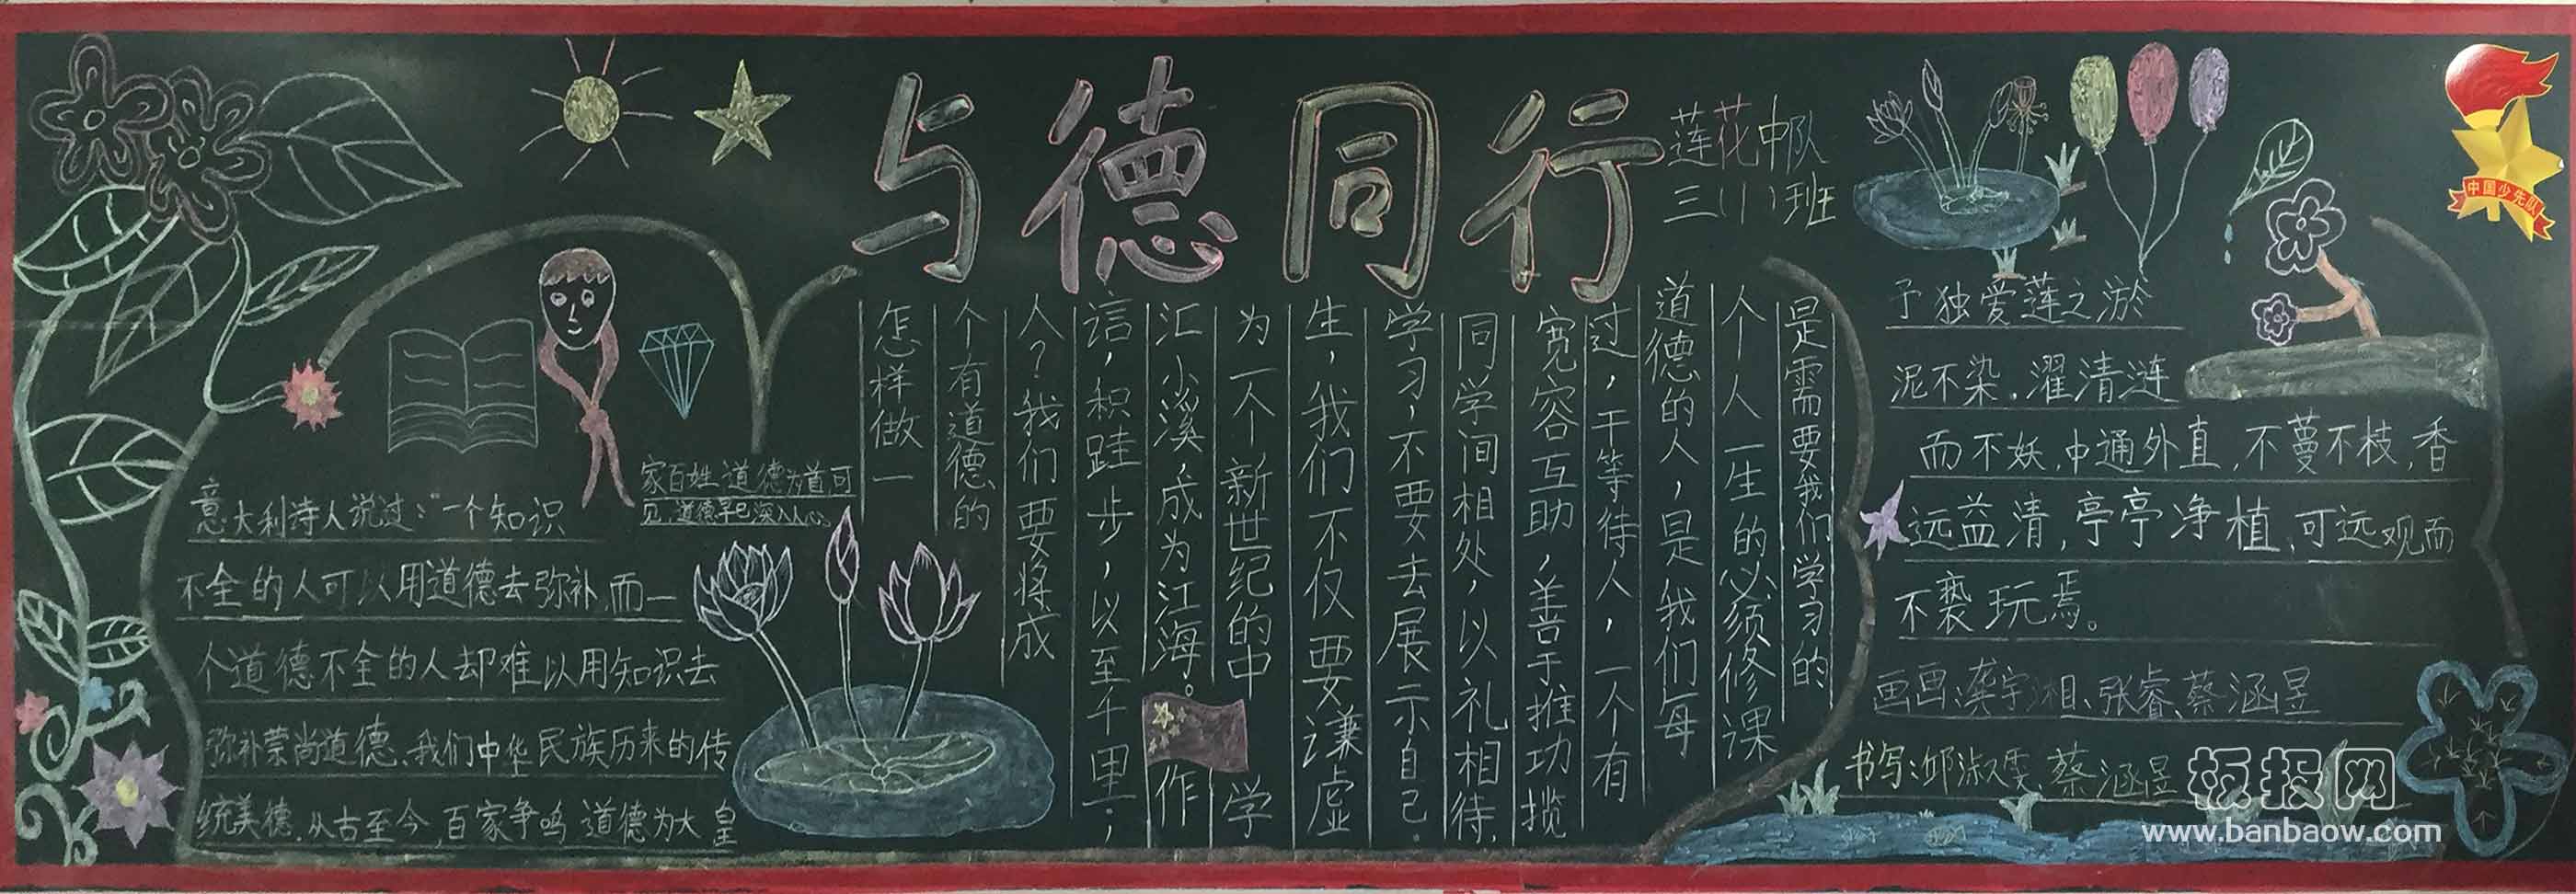 与德同行
莲花中队
三(1)班
中国少先队
意大利诗人说过：“一个知识
不全的人可以用道德去弥补,而一
个道德不全的人却难以用知识去
弥补崇尚道德、我们中华民族历来的传
统美德.从古至今,百家争鸣道德为大皇
家百姓道德为首可
见,道德早已深入人心。
怎样做一
个有道德的
人？我们要将成
信，积跬步，以至千里；
汇小溪，成为江海。作
为一个新世纪的中学
生，我们不仅要谦虚
学习，不要去展示自己.
同学间相处，以礼相待,
宽容互助，善于推功揽
过，干等待人，一个有
道德的人，是我们每
个人一生的必须修课
是需要我们学习的
予独爱莲之淤
泥不染.濯清涟
而不妖,中通外直,不蔓不枝,香
远益清,亭亭净植,可远观而
不亵玩焉。
画画:龚宇湘、张睿、蔡涵昱
书写:邱淑雯、蔡涵昱
板报网
www.banbaow.com